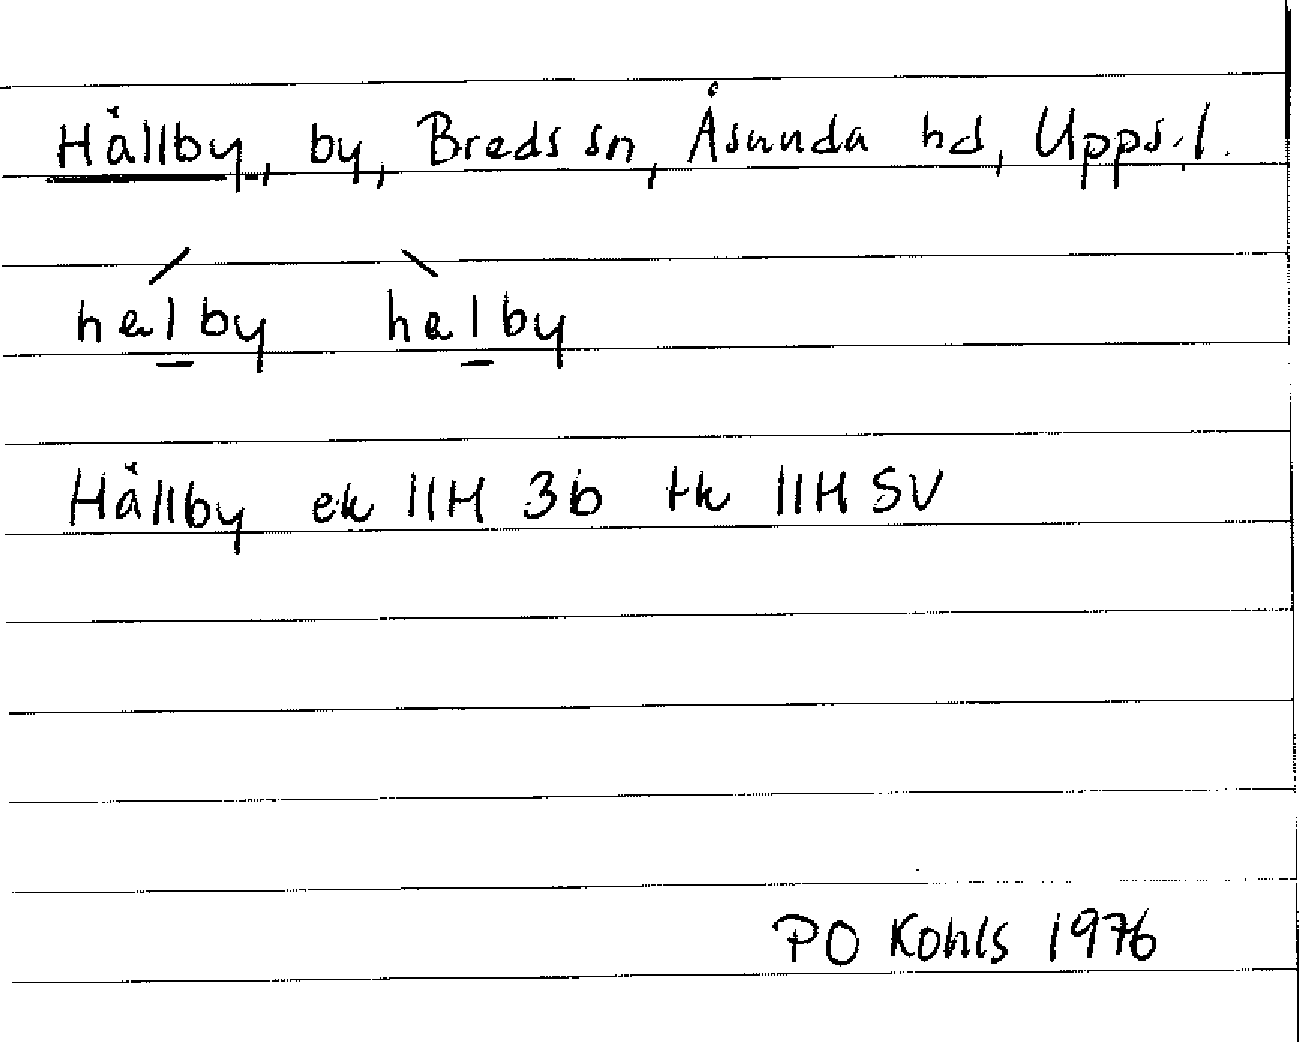 Hållby, by, Breds sn, Åsunda hd, Upps. l.
helby helby
Hållby ek 11H 3b tk 11H SV
PO Kohls 1976